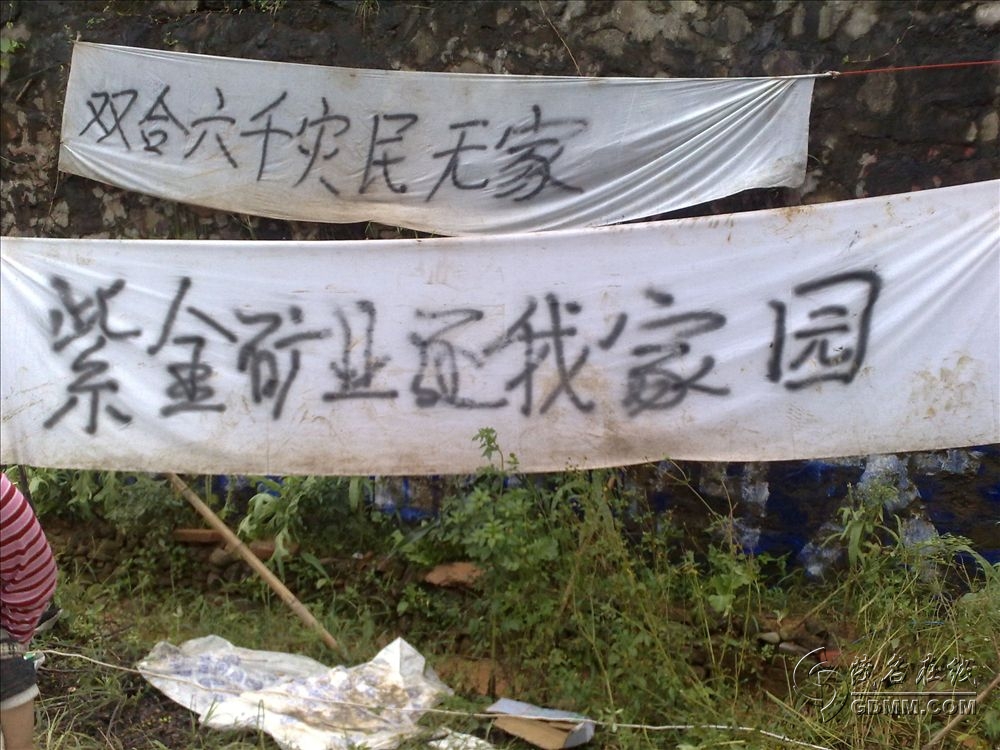 双合六千灾民无家
紫金矿业还我家园
茂名在线
GDMM.COM